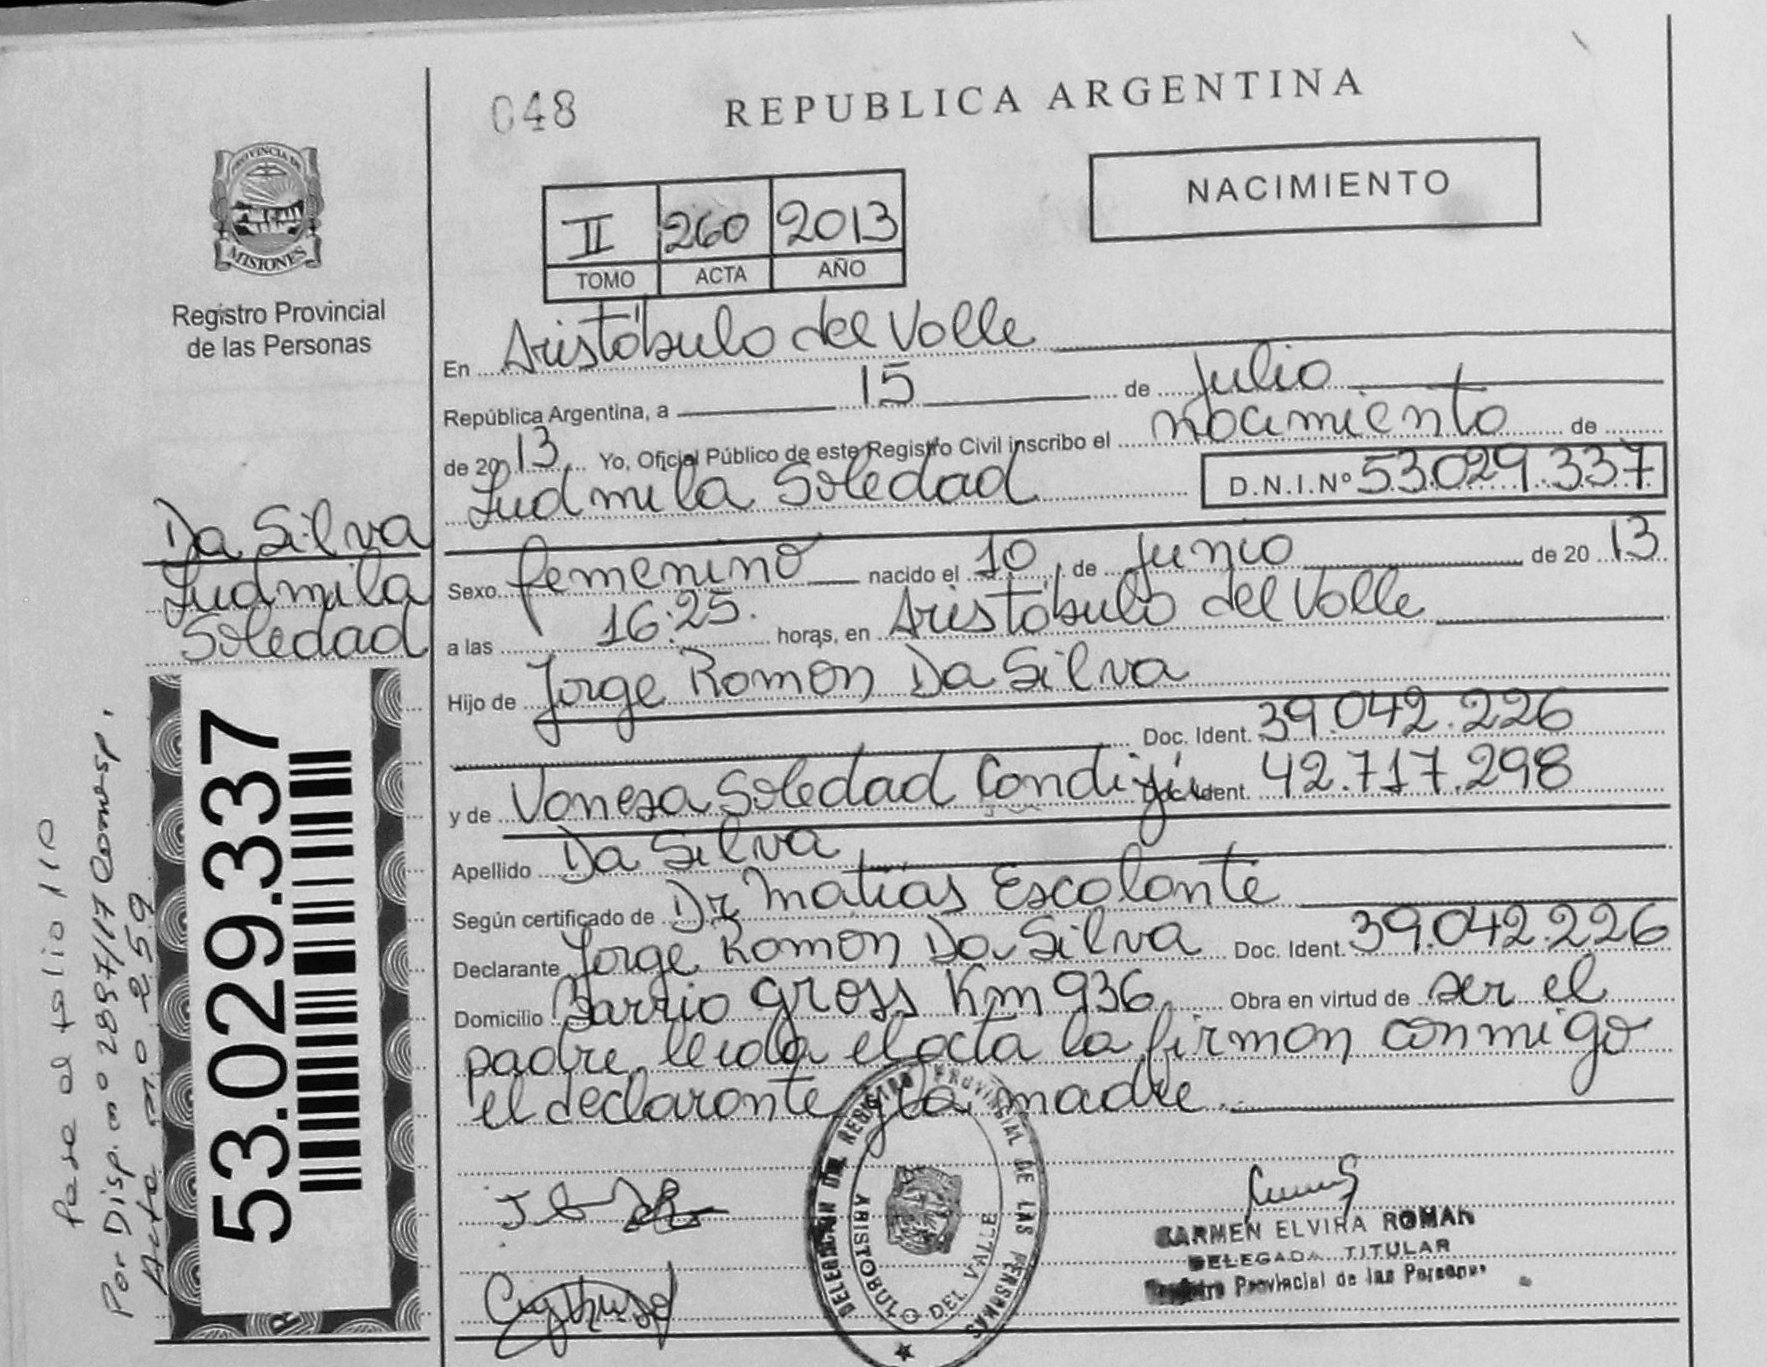 048
REPUBLICA ARGENTINA
PROVINCIA DE
MISIONES
Registro Provincial
de las Personas
NACIMIENTO
II 260 2013
TOMO ACTA AÑO
En Aristóbulo del Valle
República Argentina, a 15 de Julio
de 2013 Yo, Oficial Público de este Registro Civil inscribo el nacimiento de
Ludmila Soledad D.N.I.Nº 53.029.337
Da Silva
Ludmila
Soledad
Sexo femenino nacido el 10 de Junio de 2013
a las 16:25. horas, en Aristóbulo del Valle
Hijo de Jorge Ramón Da Silva
Doc. Ident. 39.042.226
y de Vanesa Soledad Doc. Ident. 42.717.298
Apellido Da Silva
Según certificado de Dr Matías Escalante
Declarante Jorge Ramón Da Silva Doc. Ident. 39.042.226
Domicilio Barrio Gross Km 936 Obra en virtud de ser el
padre, leida el acta la firman conmigo
el declarante y la madre.
53.029.337
Pase al folio 110
Por Disp. nº 2897/17 Corresp.
Acta nº 259
DELEGACION DEL REGISTRO PROVINCIAL DE LAS PERSONAS
ARISTOBULO DEL VALLE
CARMEN ELVIRA ROMAN
DELEGADA TITULAR
Registro Provincial de las Personas